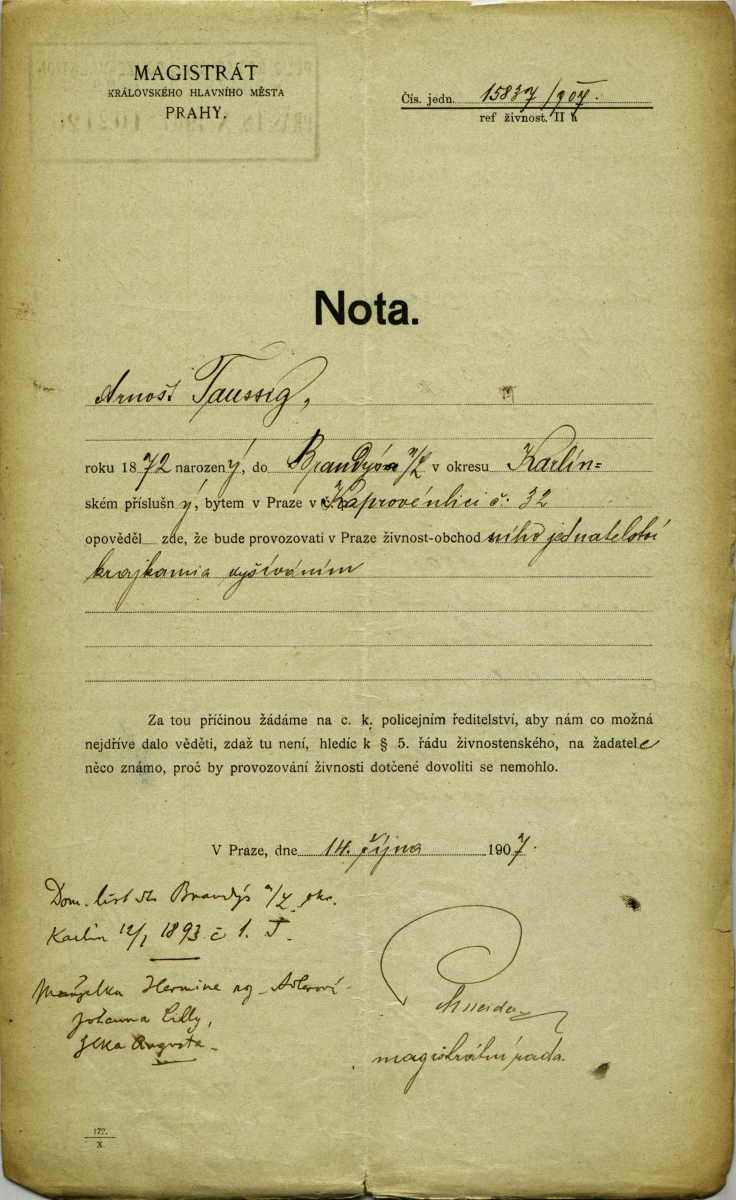 MAGISTRÁT
KRÁLOVSKÉHO HLAVNÍHO MĚSTA
PRAHY.
Čís. jedn. 15837/907.
ref živnost. II a
Nota.
Arnošt Taussig,
roku 1872 narozený, do Brandýsa n/L v okresu Karlín=
ském příslušný, bytem v Praze v Kaprové ulici č: 32
opověděl zde, že bude provozovati v Praze živnost-obchodního jednatelství
krajkami a vyšíváním
Za tou příčinou žádáme na c. k. policejním ředitelství, aby nám co možná
nejdříve dalo věděti, zdaž tu není, hledíc k § 5. řádu živnostenského, na žadatele
něco známo, proč by provozování živnosti dotčené dovoliti se nemohlo.
V Praze, dne 14. října 1907.
Dom. list Brandýs n/L. okr.
Karlín 12/1 1893 č 1.
Manželka Hermine Adlerová
Johanna Lilly,
Ilka Augusta
magistrátní rada.
172.
X.